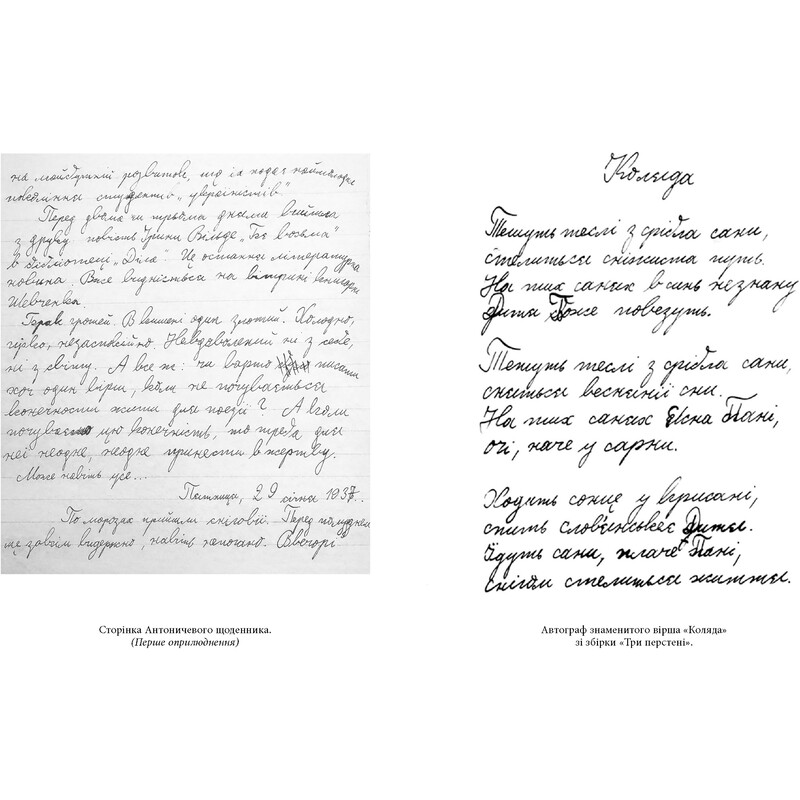 на майбутній розвиток, що їх подає наймолодше
покоління студентів „україністів”
Перед двома чи трьома днями вийшла
з друку повість Ірини Вільде „Б'є восьма”
в бібліотеці „Діла”. Це остання літературна
новина. Вже видніється на вітрині книгарні
Шевченка.
Брак грошей. В кишені один злотий. Холодно,
гірко, неспокійно. Невдоволений ні з себе,
ні з світу. А все ж: чи варто писати
хоч один вірш, коли не почувається
конечности жити для поезії? А коли
почувається цю конечність, то треба для
неї неодне, неодне принести в жертву.
Може навіть усе...
Пятниця, 29 січня 1937.
По морозах прийшли сніговії. Перед полуднем
ще зовсім видержно, навіть погідно. Ввечорі
Сторінка Антоничевого щоденника.
(Перше оприлюднення)
Коляда
Тешуть теслі з срібла сани,
стелиться сніжиста путь.
На тих санях в синь незнану
Дитя Боже повезуть.
Тешуть теслі з срібла сани,
сняться веснянії сни.
На тих санях Ясна Пані,
очі, наче у сарни.
Ходить сонце у крисані,
спить слов'янськеє Дитя.
Їдуть сани, плаче Пані,
снігом стелиться життя.
Автограф знаменитого вірша «Коляда»
зі збірки «Три перстені».